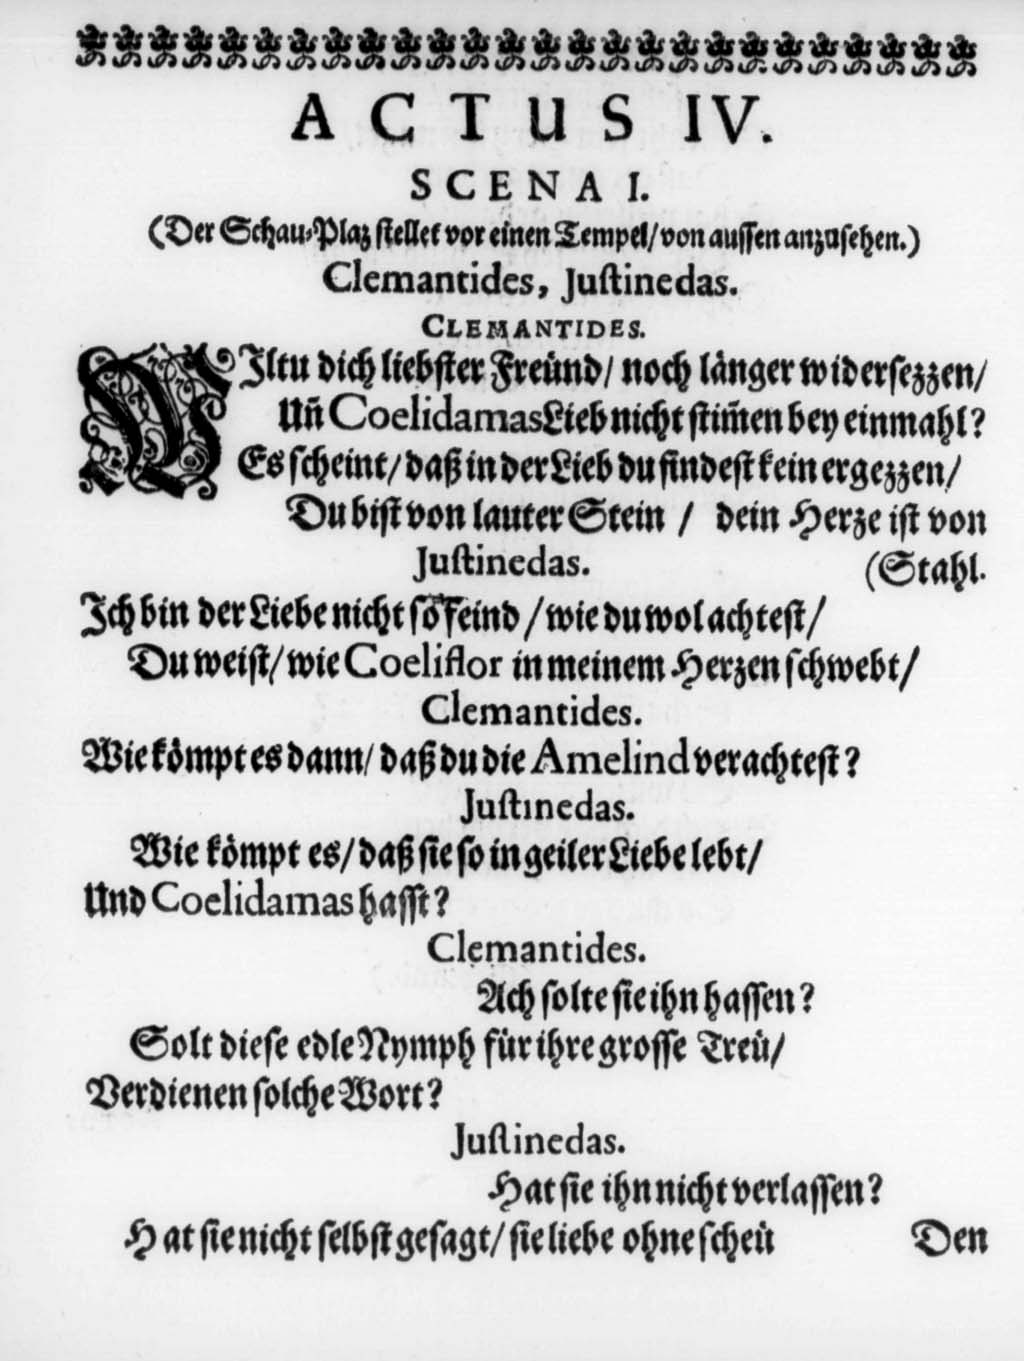 ACTUS IV.
SCENA I.
(Der Schau-Plaz stellet vor einen Tempel/ von aussen anzusehen.)
Clemantides, Justinedas.
CLEMANTIDES.
WIltu dich liebster Freünd/ noch länger widersezzen/
Uñ Coelidamas Lieb nicht stim̃en bey einmahl?
Es scheint/ daß in der Lieb du findest kein ergezzen/
Du bist von lauter Stein / dein Herze ist von
(Stahl.
Justinedas.
Ich bin der Liebe nicht so Feind / wie du wol achtest/
Du weist/ wie Coeliflor in meinem Herzen schwebt/
Clemantides.
Wie kömpt es dann/ daß du die Amelind verachtest?
Justinedas.
Wie kömpt es/ daß sie so in geiler Liebe lebt/
Und Coelidamas hasst?
Clemantides.
Ach solte sie ihn hassen?
Solt diese edle Nymph für ihre grosse Treü/
Verdienen solche Wort?
Justinedas.
Hat sie ihn nicht verlassen?
Hat sie nicht selbst gesagt/ sie liebe ohne scheü
Den